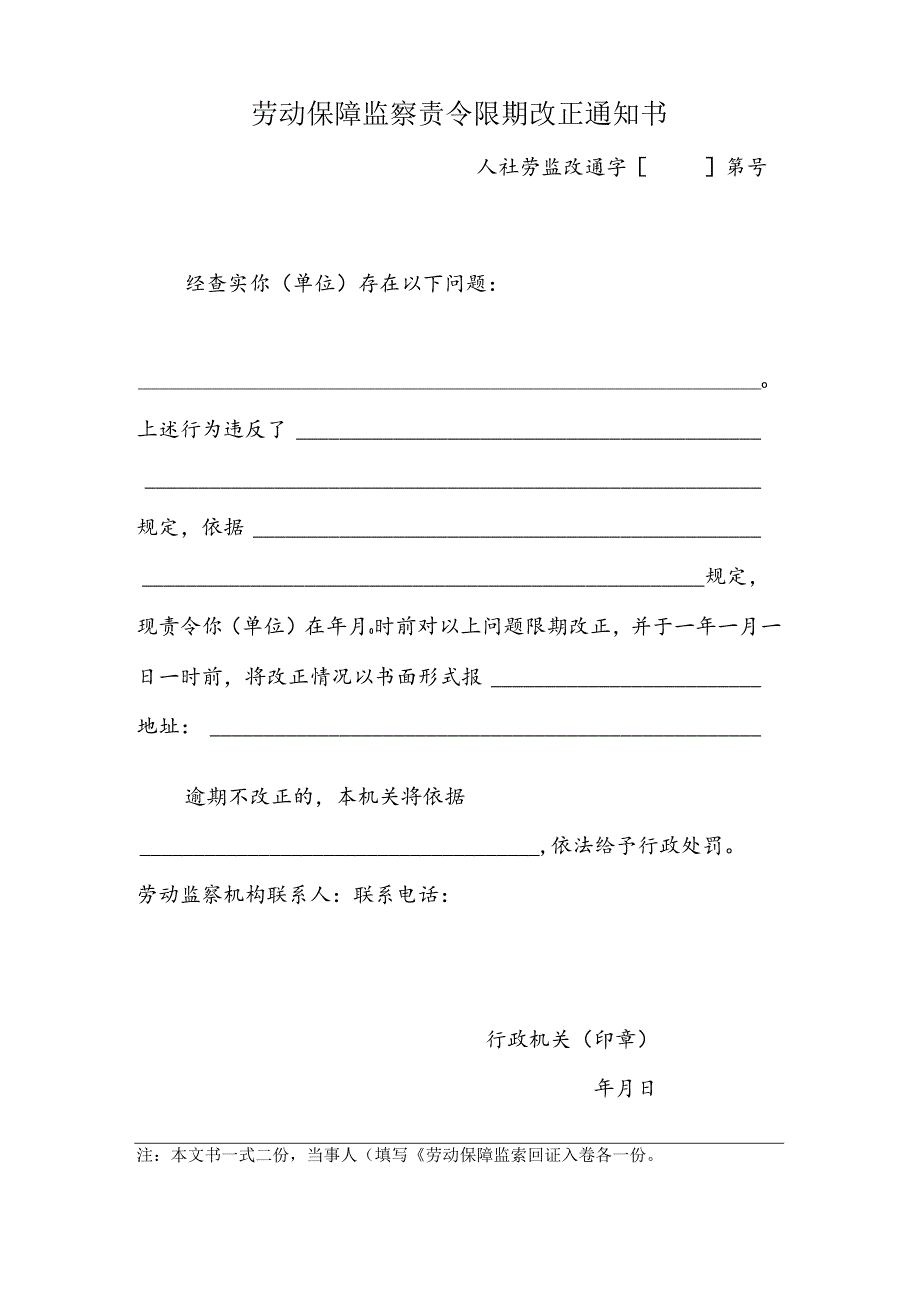 劳动保障监察责令限期改正通知书
人社劳监改通字［　　］第号
经查实你（单位）存在以下问题：
________________________________________________。
上述行为违反了 ____________________________________
________________________________________________
规定，依据 _______________________________________
___________________________________________规定，
现责令你（单位）在年月。时前对以上问题限期改正，并于一年一月一
日一时前，将改正情况以书面形式报 _____________________
地址： __________________________________________
逾期不改正的，本机关将依据
_______________________________,依法给予行政处罚。
劳动监察机构联系人：联系电话：
行政机关（印章）
年月日
注：本文书一式二份，当事人（填写《劳动保障监索回证入卷各一份。